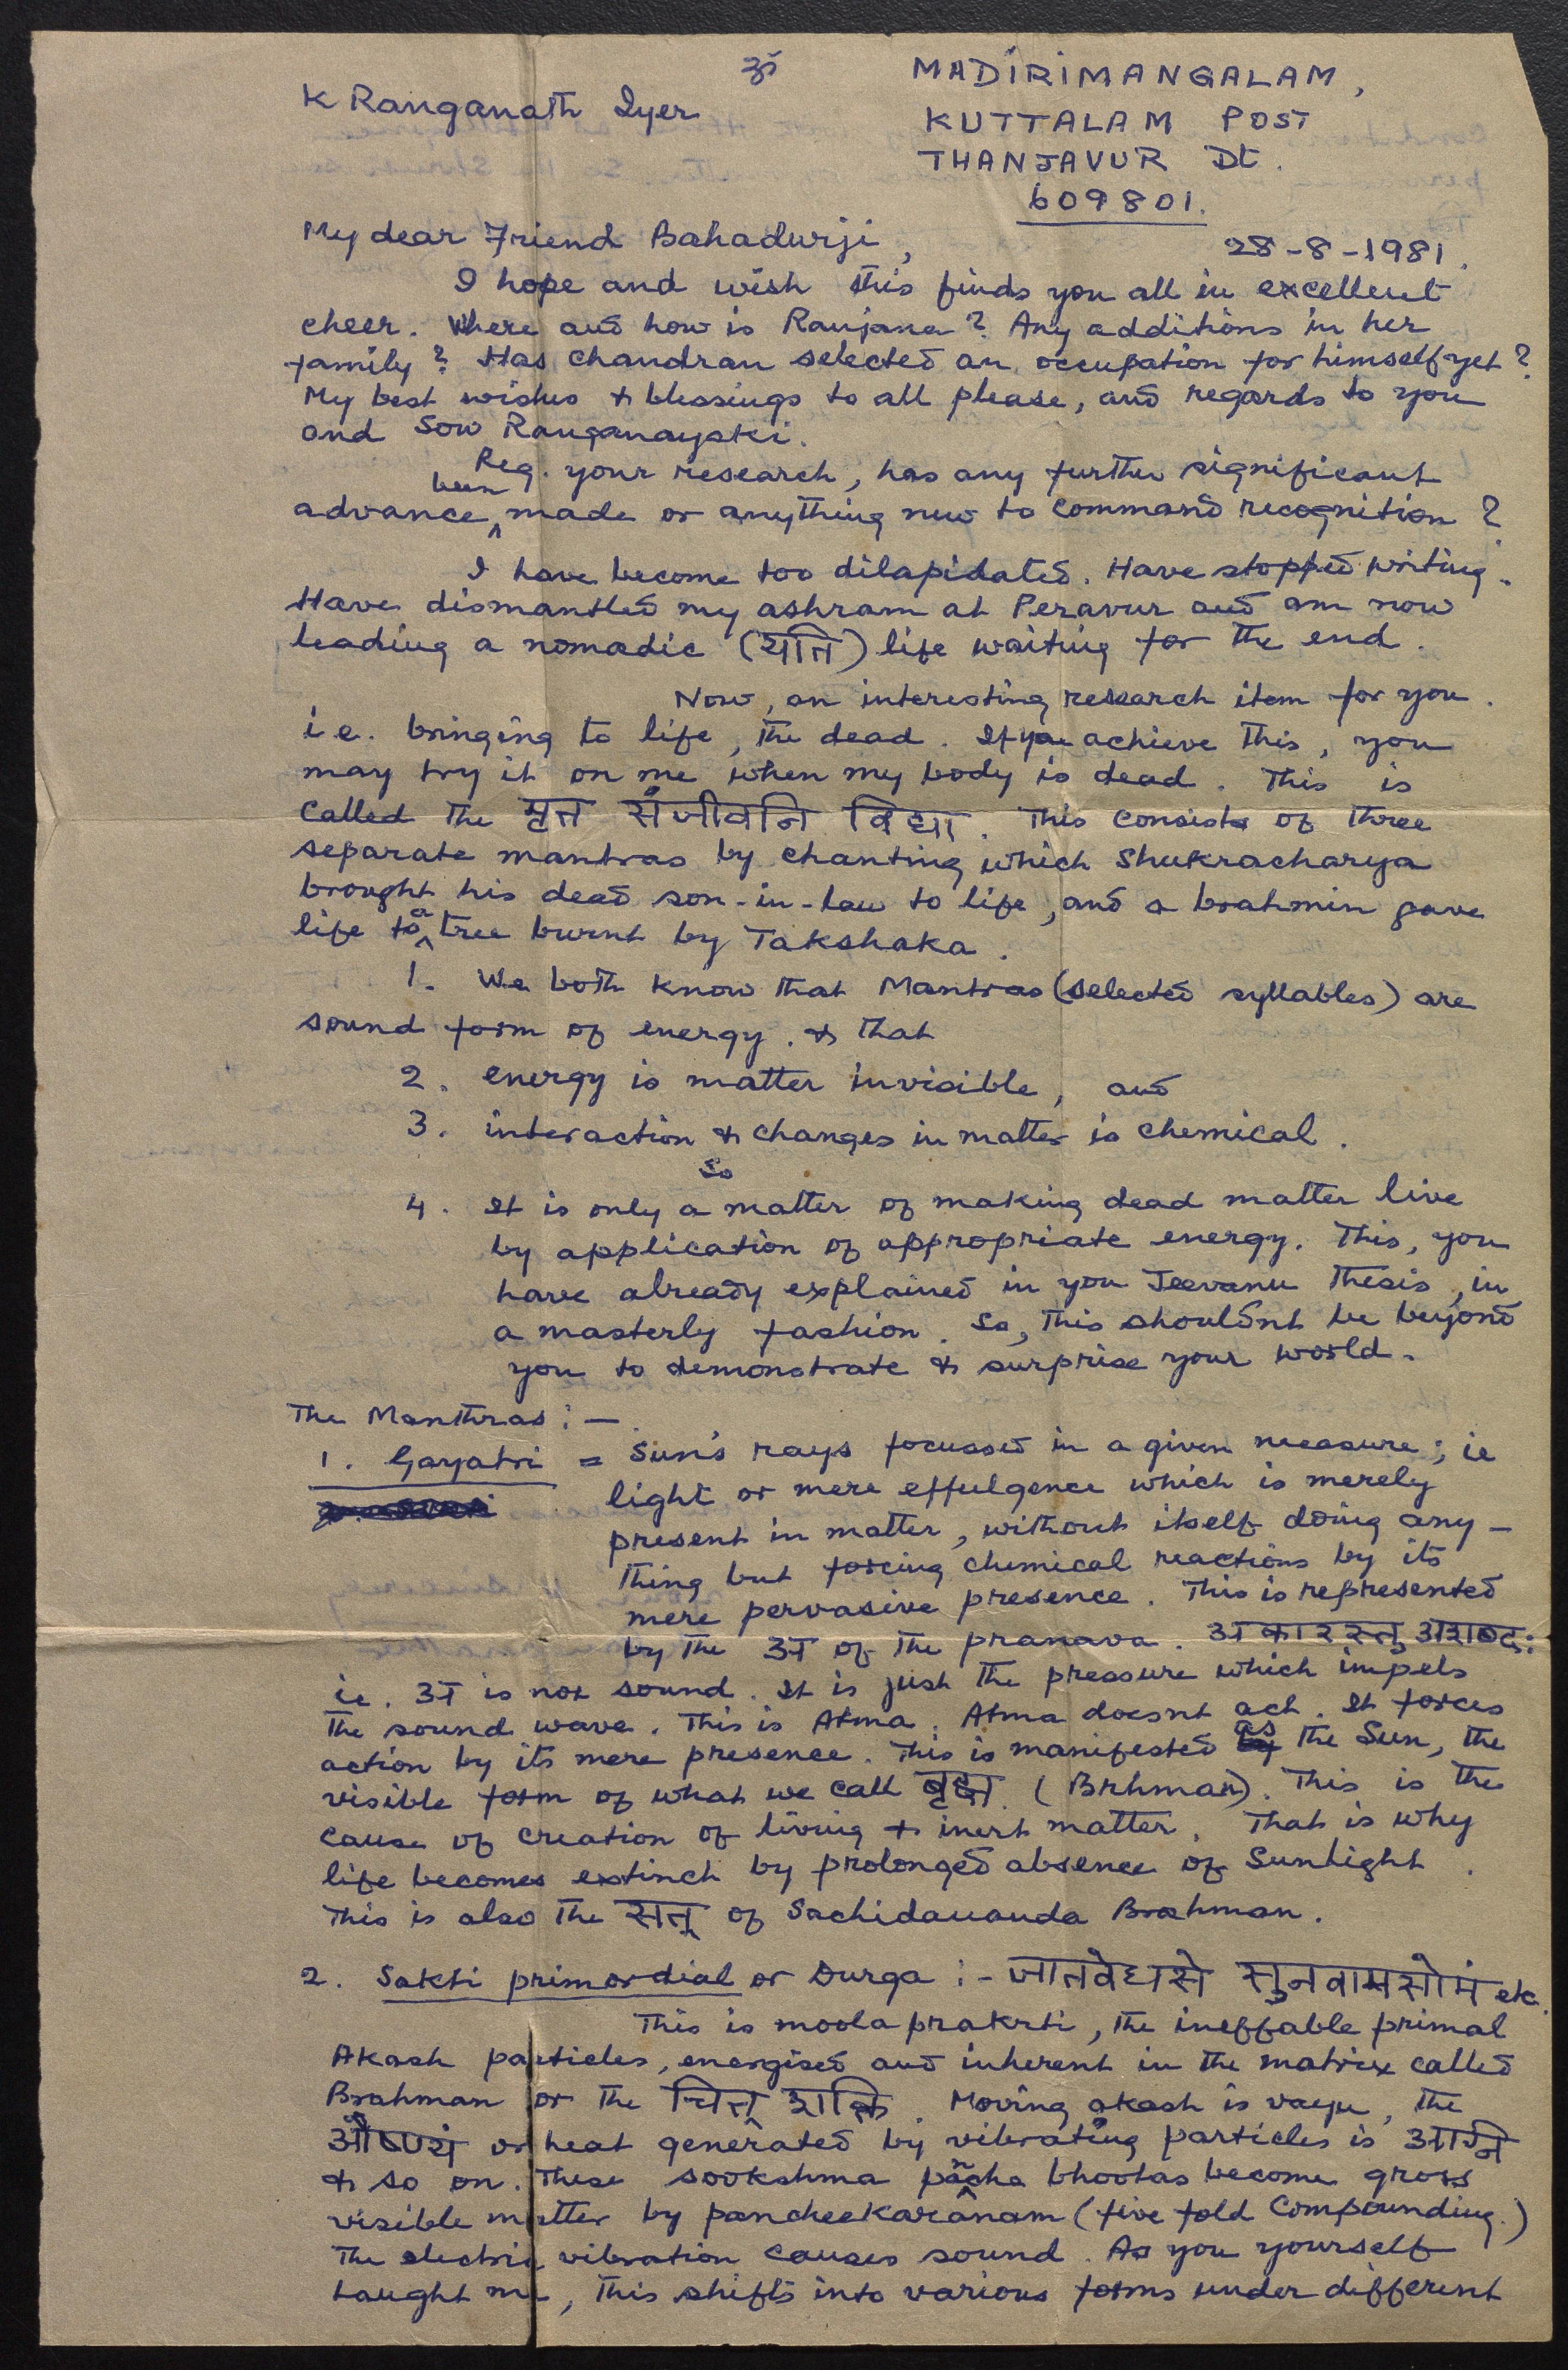 ॐ
K Ranganath Iyer
MADIRIMANGALAM,
KUTTALAM POST
THANJAVUR Dt.
609801.
28-8-1981.
My dear Friend Bahadurji,
I hope and wish this finds you all in excellent
cheer. Where and how is Ranjana? Any additions in her
family? Has Chandran selected an occupation for himself yet?
My best wishes & blessings to all please, and regards to you
and Sow Ranganayaki.
Reg. your research, has any further significant
advance been made or anything new to command recognition?
I have become too dilapidated. Have stopped writing.
Have dismantled my ashram at Peravur and am now
leading a nomadic (यति) life waiting for the end.
Now, an interesting research item for you.
i.e. bringing to life, the dead. If you achieve this, you
may try it on me when my body is dead. This is
called the मृत संजीवनि विद्या. This consists of three
separate mantras by chanting which Shukracharya
brought his dead son-in-law to life, and a brahmin gave
life to a tree burnt by Takshaka.
1. We both know that Mantras (selected syllables) are
sound form of energy. & that
2. energy is matter invisible, and
3. interaction & changes in matter is chemical.
4. So It is only a matter of making dead matter live
by application of appropriate energy. This, you
have already explained in you Jeevanu Thesis, in
a masterly fashion. So, this shouldnt be beyond
you to demonstrate & surprise your world.
The Manthras:—
1. Gayatri = Sun's rays focussed in a given measure; ie
light or mere effulgence which is merely
present in matter, without itself doing any-
thing but forcing chemical reactions by its
mere pervasive presence. This is represented
by the अ of the pranava. अकारस्तु अशब्दः
ie. अ is not sound. It is just the pressure which impels
the sound wave. This is Atma. Atma doesnt act. It forces
action by its mere presence. This is manifested as the Sun, the
visible form of what we call बृह्म. (Brhman). This is the
cause of creation of living & inert matter. That is why
life becomes extinct by prolonged absence of Sunlight.
This is also the सत् of Sachidananda Brahman.
2. Sakti primordial or Durga :- जातवेधासे सुनवामसोमं etc.
This is moola prakrti, the ineffable primal
Akash particles, energised and inherent in the matrix called
Brahman or the चित् शक्ति. Moving akash is vayu, the
or heat generated by vibrating particles is अग्नि
& so on. These sookshma pancha bhootas become gross
visible matter by pancheekaranam (five fold compounding.)
The electric vibration causes sound. As you yourself
taught me, this shifts into various forms under different